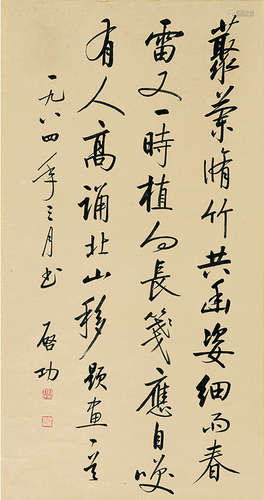 叢蘭脩竹共幽姿細雨春
雷又一時植向長箋應自笑
有人高誦北山移 題畫一首
一九八四年三月書
啟功